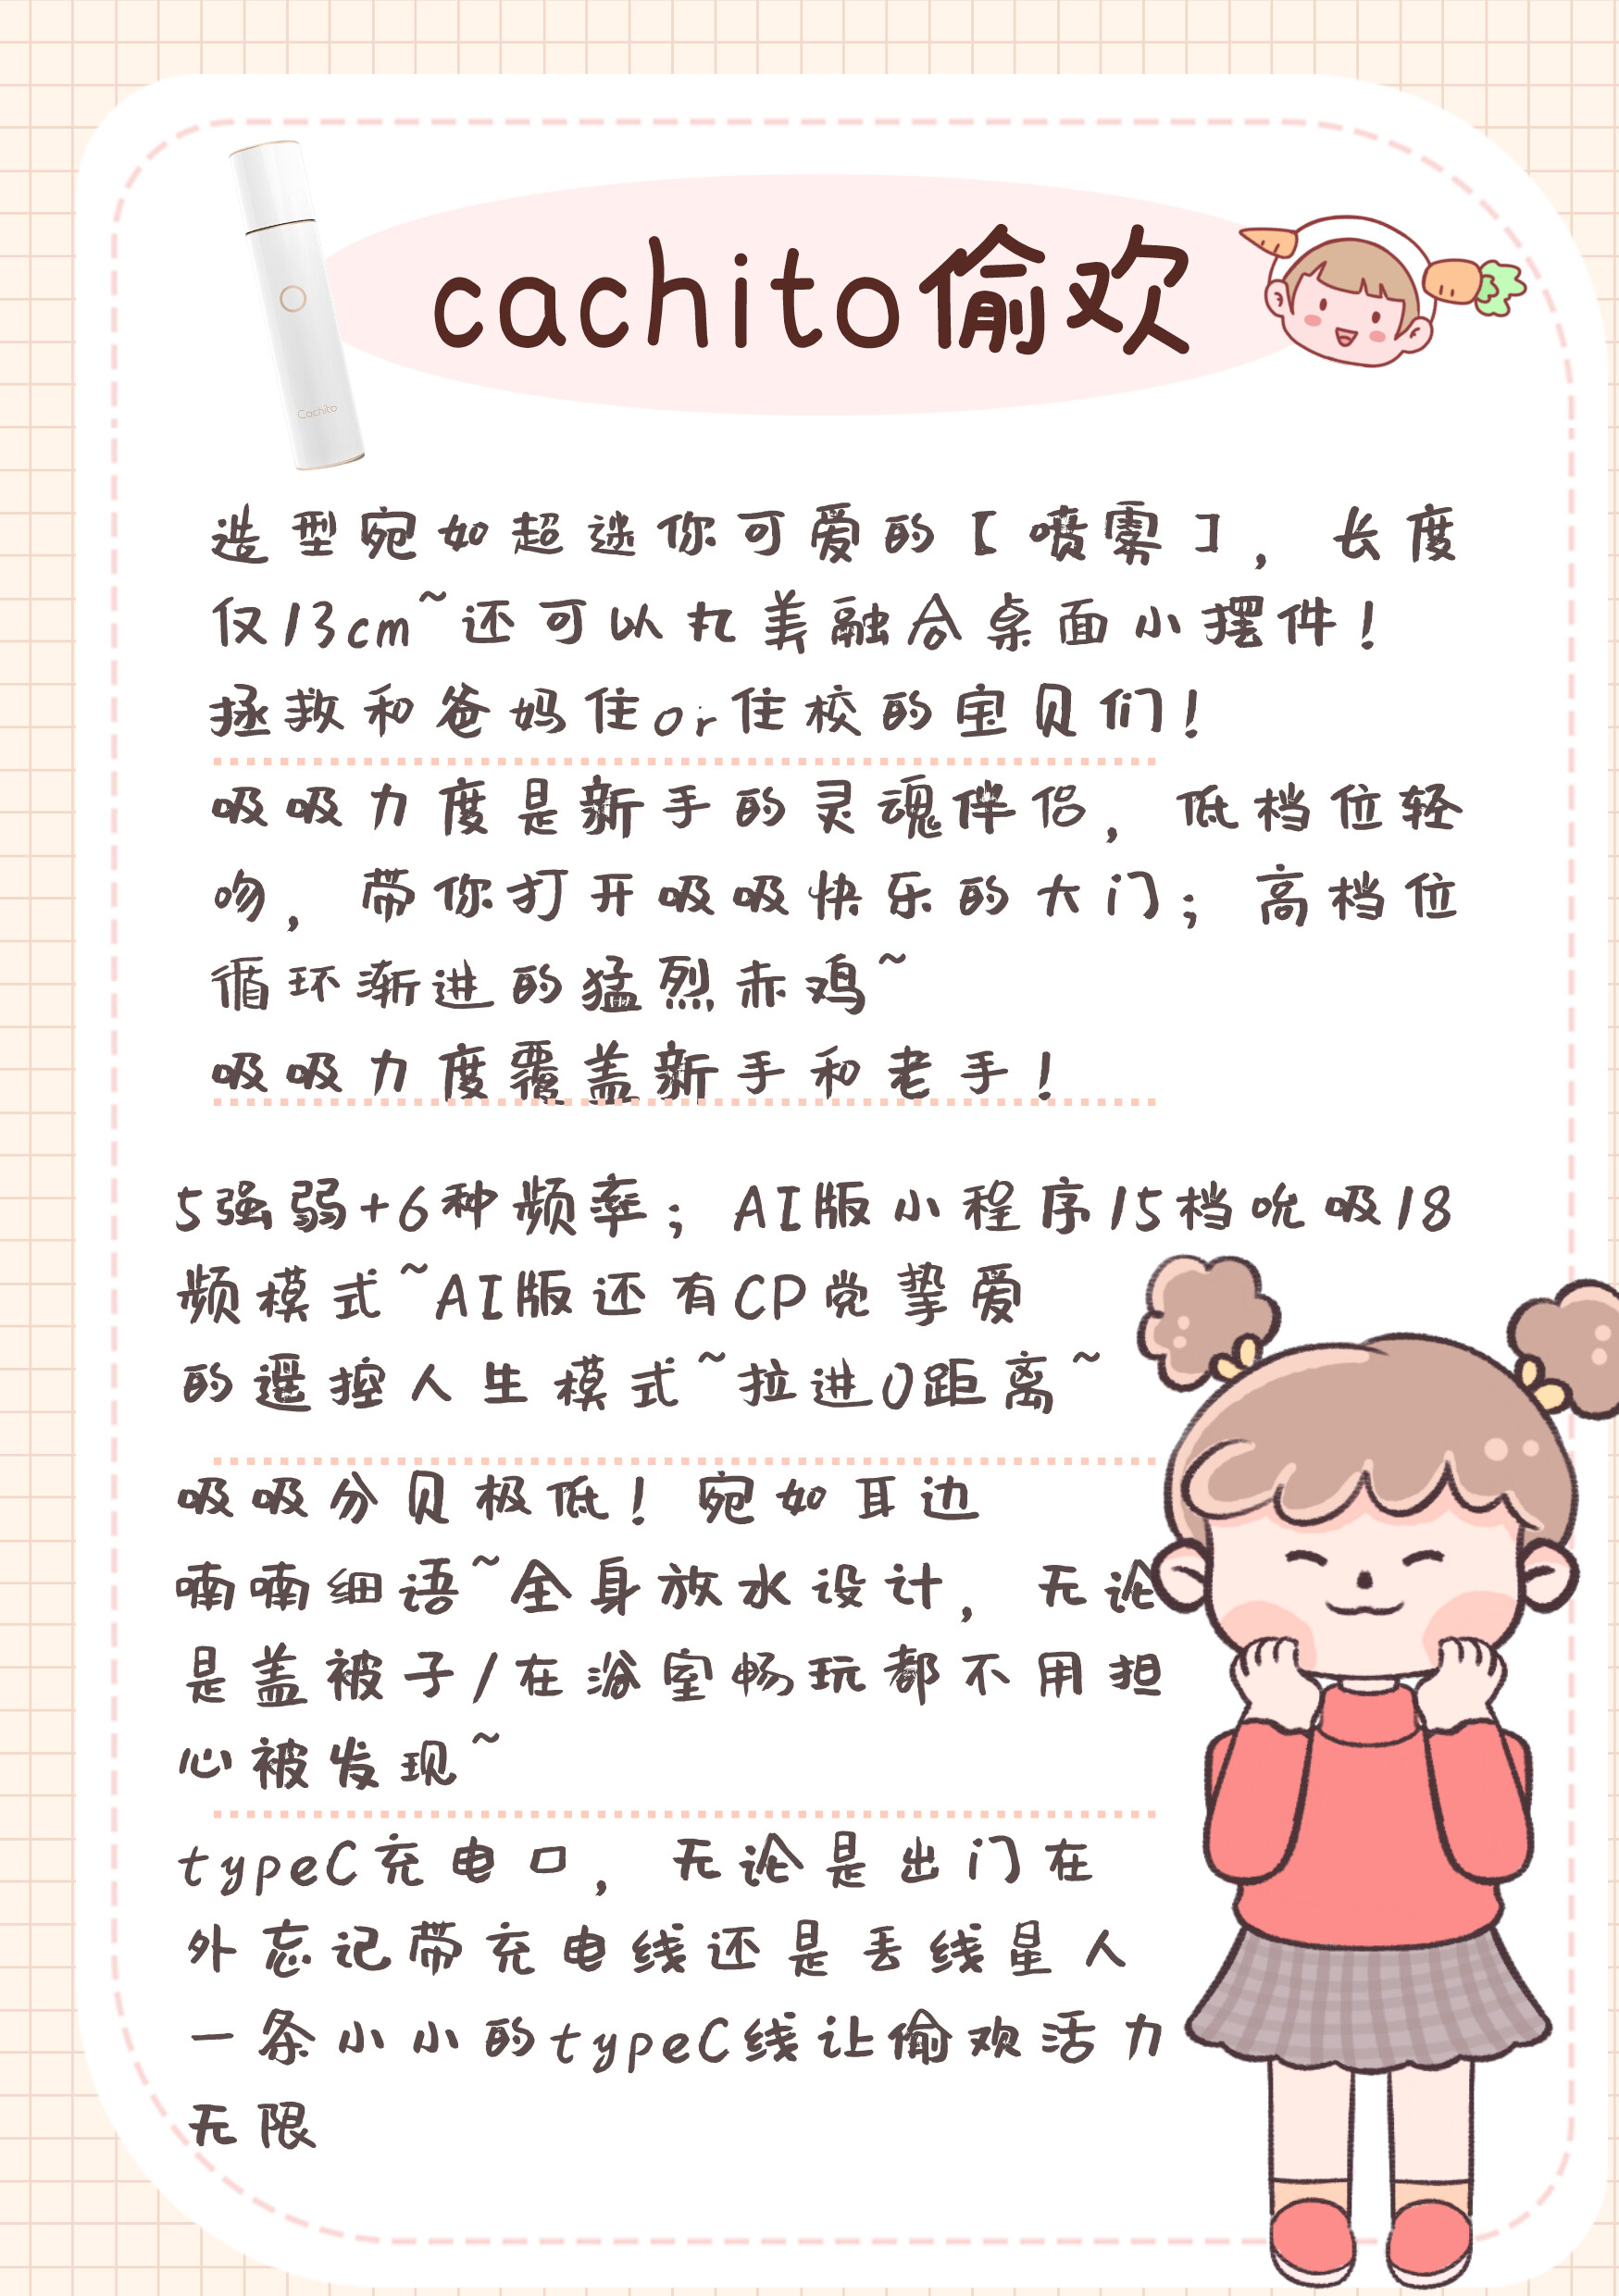 cachito偷欢
Cachito
造型宛如超迷你可爱的【喷雾】，长度
仅13cm~还可以丸美融合桌面小摆件！
拯救和爸妈住or住校的宝贝们！
吸吸力度是新手的灵魂伴侣，低档位轻
吻，带你打开吸吸快乐的大门；高档位
循环渐进的猛烈赤鸡~
吸吸力度覆盖新手和老手！
5强弱+6种频率；AI版小程序15档吮吸18
频模式~AI版还有CP党挚爱
的遥控人生模式~拉进0距离~
吸吸分贝极低！宛如耳边
喃喃细语~全身放水设计，无论
是盖被子/在浴室畅玩都不用担
心被发现~
typeC充电口，无论是出门在
外忘记带充电线还是丢线星人
一条小小的typeC线让偷欢活力
无限